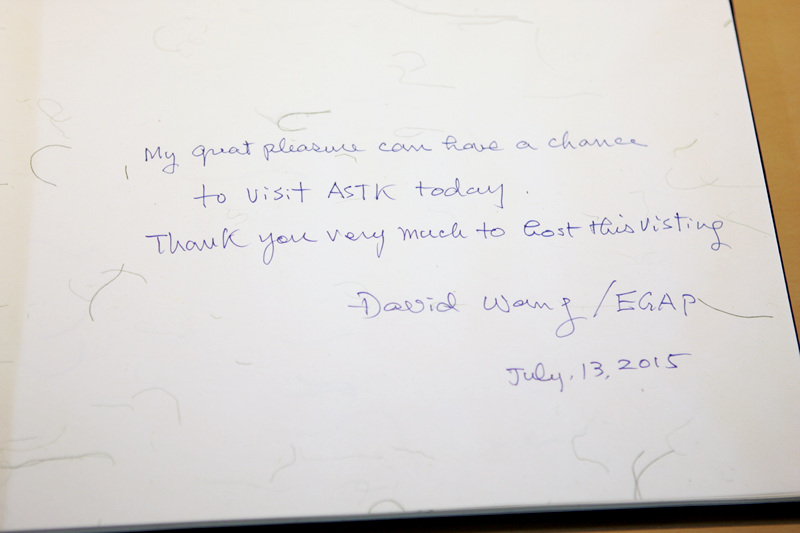 My great pleasure can have a chance
to visit ASTK today.
Thank you very much to host this visting
David Wang / EGAP
July. 13, 2015